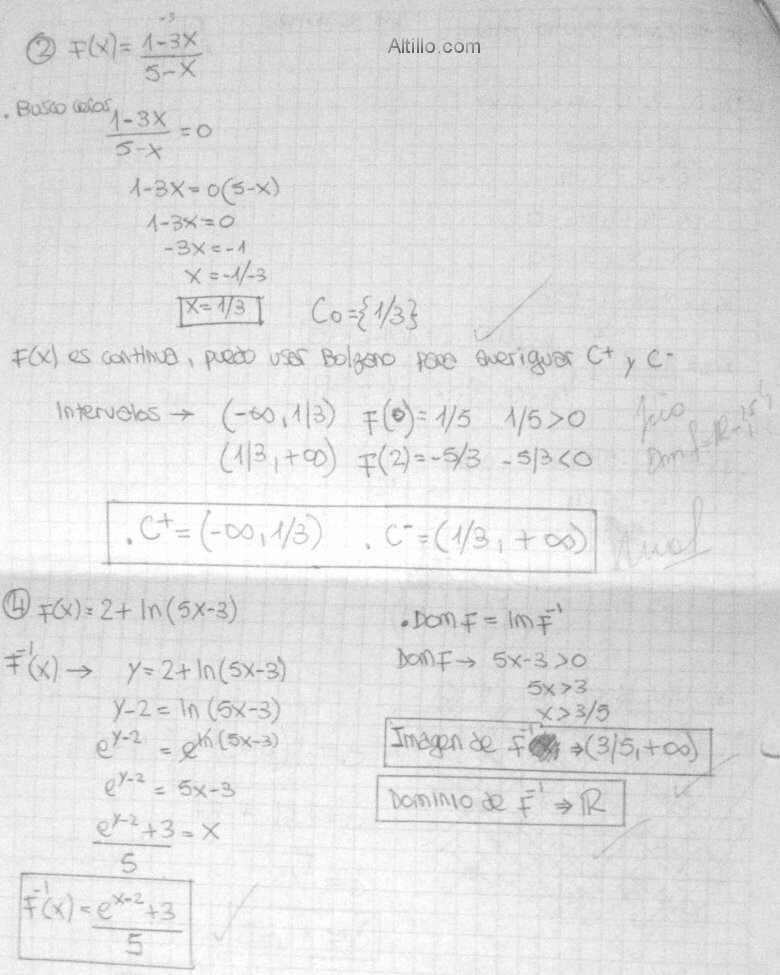 Altillo.com
-3
② F(x) = (1-3x)/(5-x)
. Busco ceros
(1-3x)/(5-x) = 0
1-3x = 0(5-x)
1-3x = 0
-3x = -1
x = -1/-3
x = 1/3
C₀ = {1/3}
F(x) es continua, puedo usar Bolzano para averiguar C⁺ y C⁻
Intervalos → (-∞, 1/3) F(0) = 1/5 1/5 > 0
(1/3, +∞) F(2) = -5/3 -5/3 < 0
Dom f = R -
. C⁺ = (-∞, 1/3) . C⁻ = (1/3, +∞)
④ F(x) = 2 + ln(5x-3)
F⁻¹(x) → y = 2 + ln(5x-3)
y-2 = ln(5x-3)
e^(y-2) = e^(ln(5x-3))
e^(y-2) = 5x-3
(e^(y-2) + 3)/5 = x
F⁻¹(x) = (e^(x-2) + 3)/5
. Dom F = Im F⁻¹
Dom F → 5x-3 > 0
5x > 3
x > 3/5
Imagen de F⁻¹ → (3/5, +∞)
Dominio de F⁻¹ → ℝ